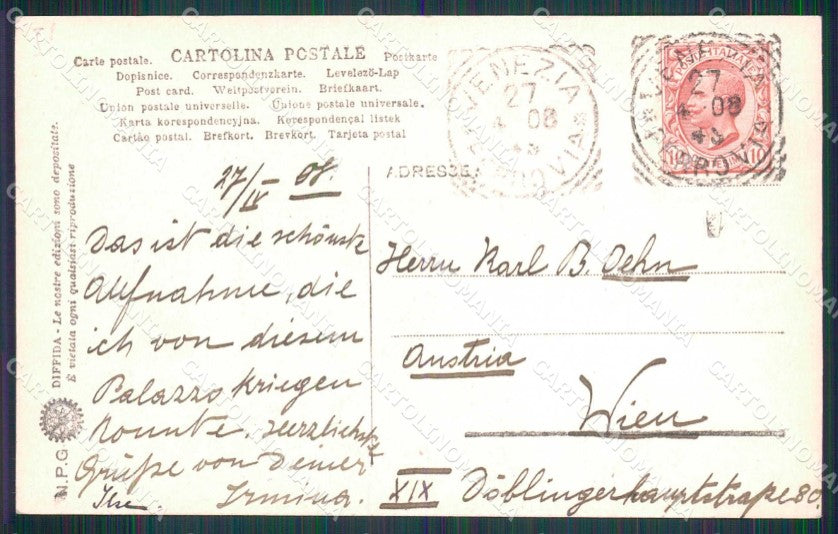 Carte postale. CARTOLINA POSTALE Postkarte
Dopisnice. Correspondenzkarte. Levelező-Lap
Post card. Weltpostverein. Briefkaart.
Union postale universelle. Unione postale universale.
Karta korespondencyjna. Korespondenčal listek
Cartão postal. Brefkort. Brevkort. Tarjeta postal
VENEZIA
27
4 08
FERROVIA
VENEZIA
27
4 08
FERROVIA
10
ADRESSE
27/IV 08.
Das ist die schönste
Aufnahme, die
ich von diesem
Palazzo kriegen
konnte. Herzlichste
Grüße von Deiner
Irmina.
Herrn Karl B. Oehn
Austria
Wien
XIX Döblingerhauptstraße 80.
DIFFIDA - Le nostre edizioni sono depositate.
È vietata ogni qualsiasi riproduzione
N.P.G.
CARTOLINOMANIA